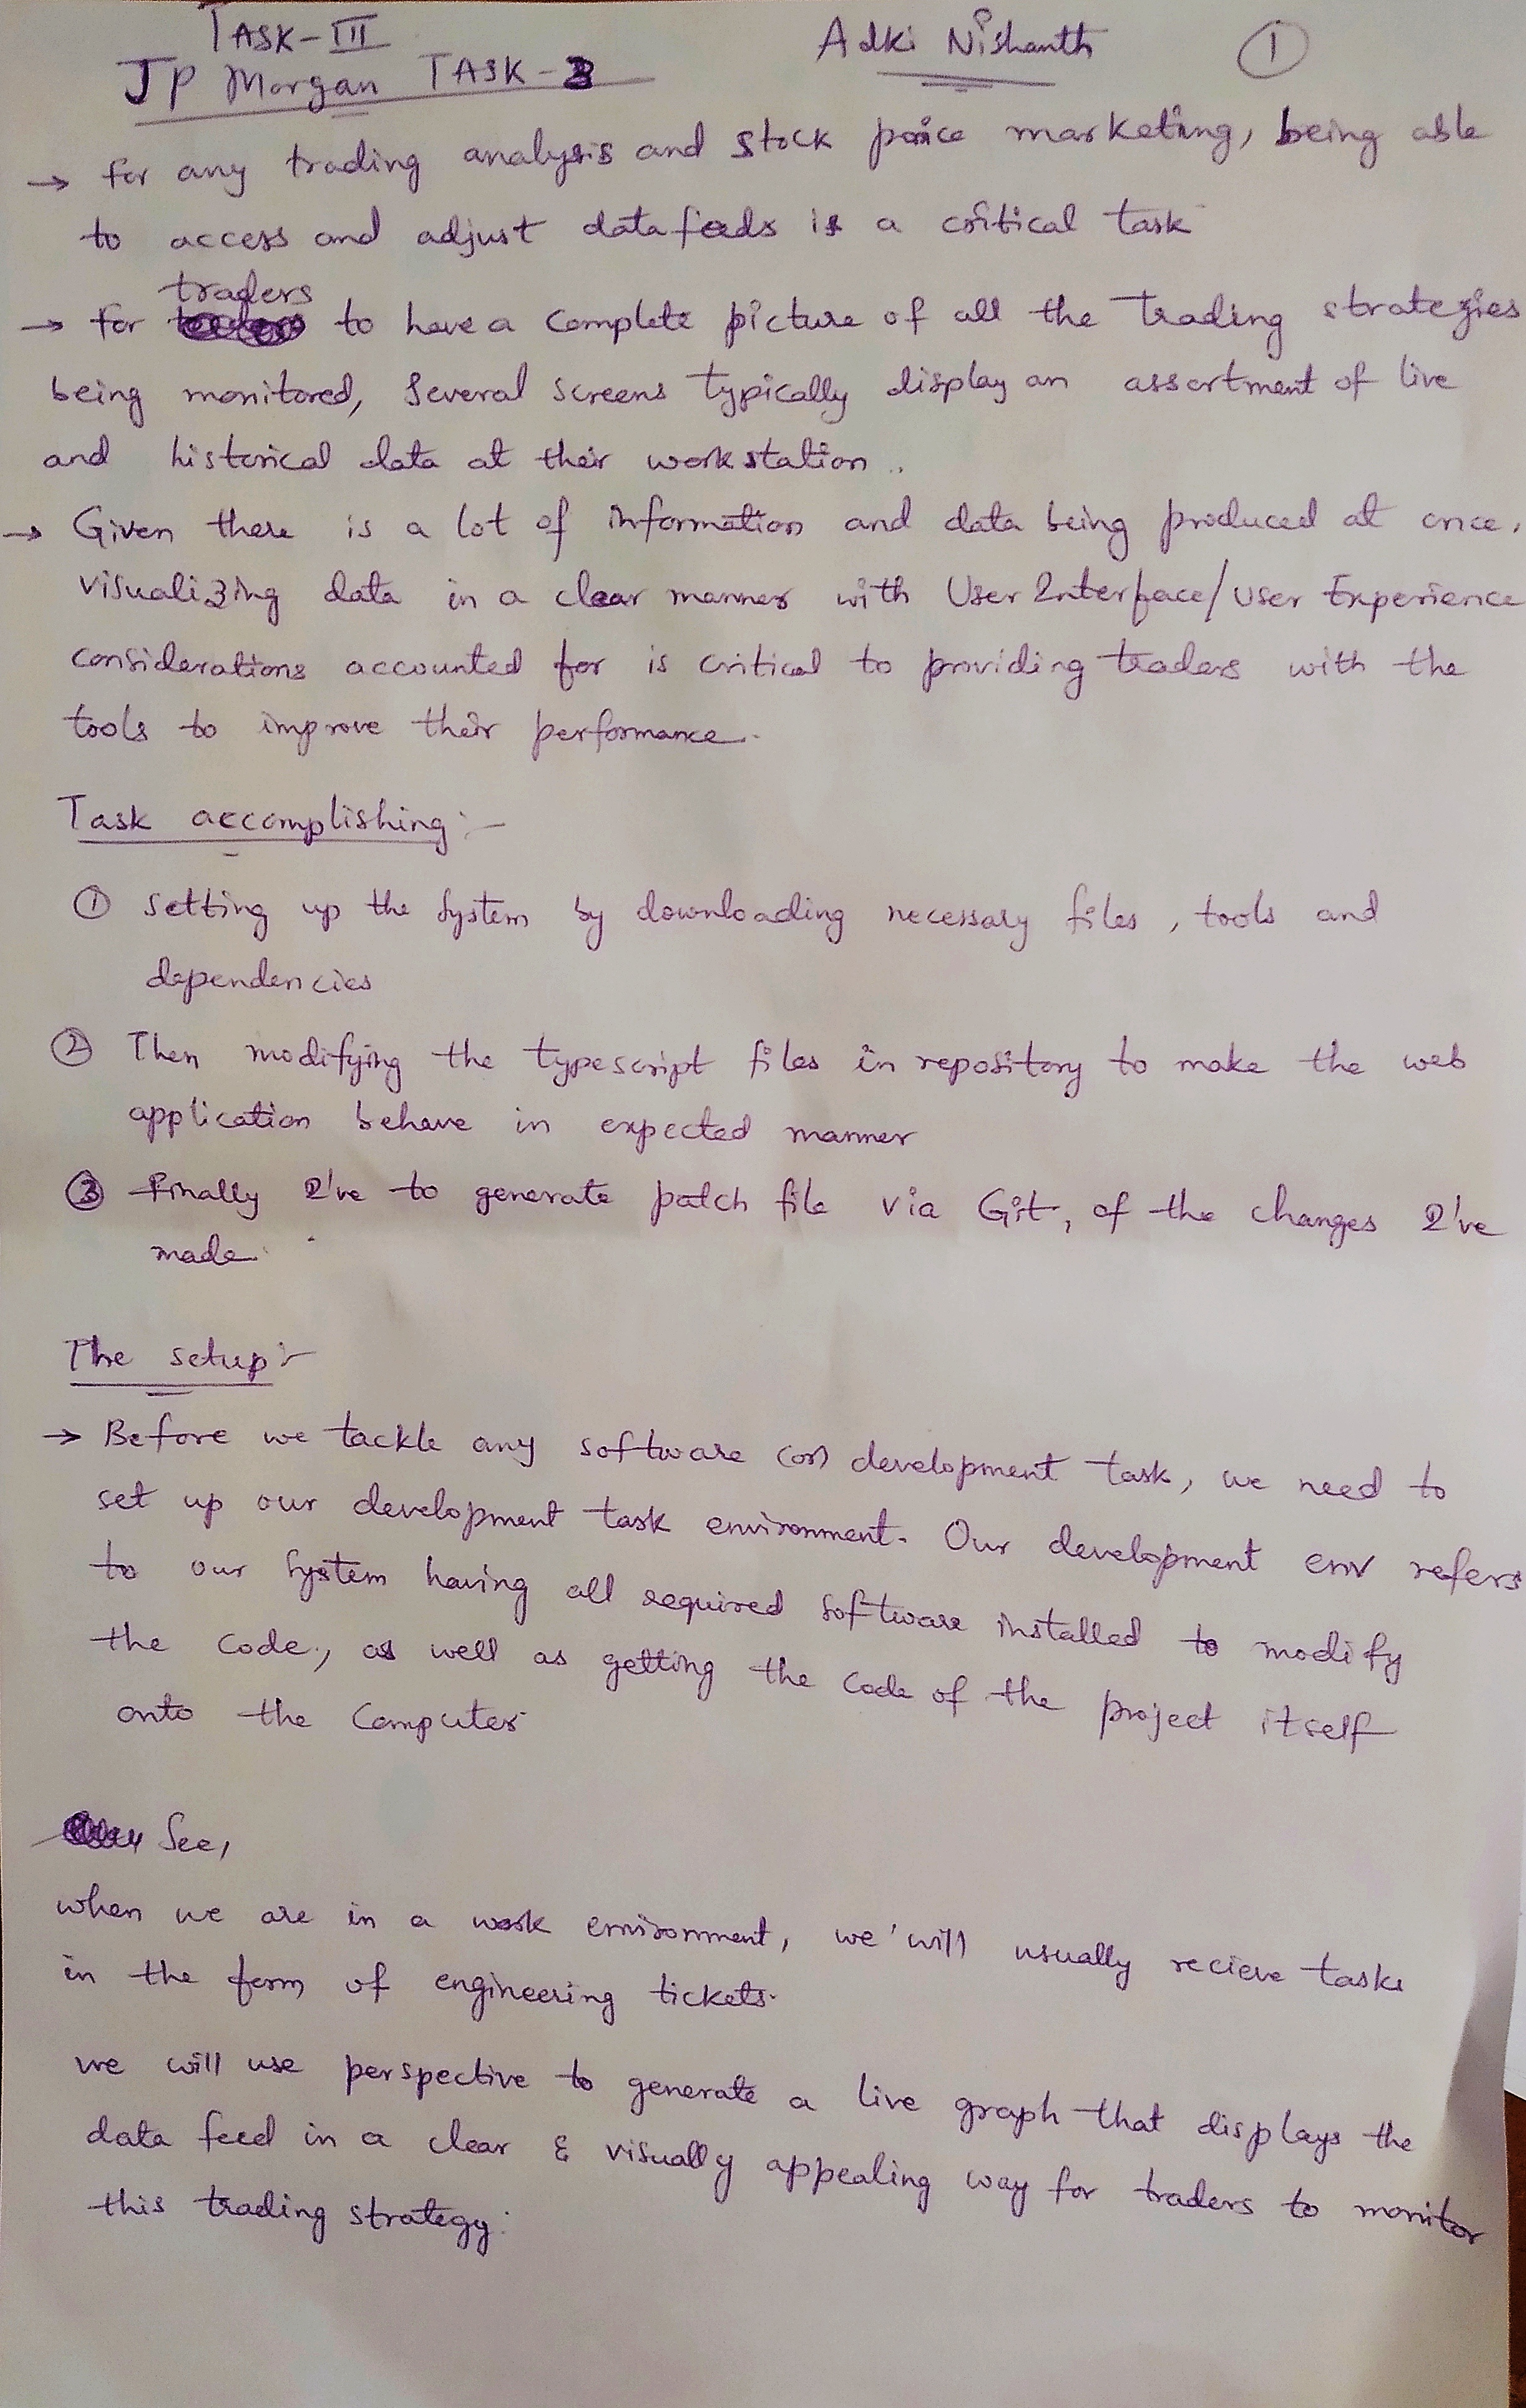 TASK-III
Adki Nishanth
1
JP Morgan TASK-3
→ for any trading analysis and stock price marketing, being able
to access and adjust data feeds is a critical task
traders
→ for to have a complete picture of all the trading strategies
being monitored, several screens typically display an assortment of live
and historical data at their workstation..
→ Given there is a lot of information and data being produced at once,
visualizing data in a clear manner with User Interface/User Experience
considerations accounted for is critical to providing traders with the
tools to improve their performance.
Task accomplishing:-
① Setting up the system by downloading necessary files, tools and
dependencies
② Then modifying the typescript files in repository to make the web
application behave in expected manner
③ Finally I've to generate patch file via Git, of the changes I've
made.
The setup:-
→ Before we tackle any software (or) development task, we need to
set up our development task environment. Our development env refers
to our system having all required software installed to modify
the code, as well as getting the code of the project itself
onto the computer
See,
when we are in a work environment, we'will usually recieve tasks
in the form of engineering tickets.
we will use perspective to generate a live graph that displays the
data feed in a clear & visually appealing way for traders to monitor
this trading strategy.